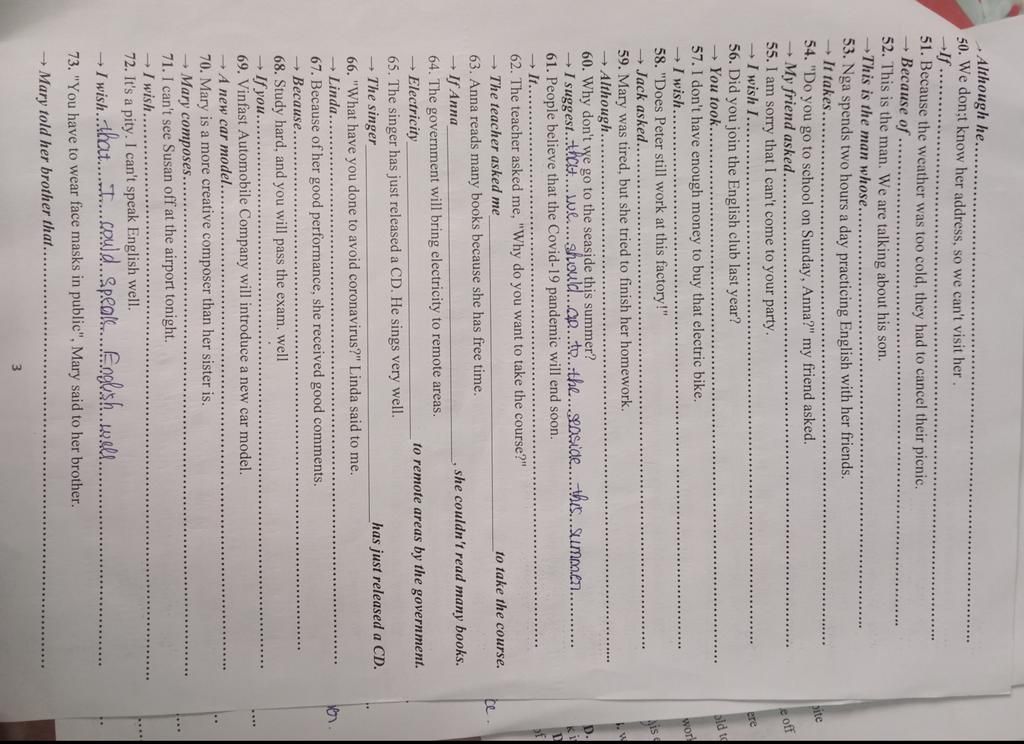 → Although he.....
50. We don;t know her address, so we can't visit her .
→If .....
51. Because the weather was too cold, they had to cancel their picnic.
→ Because of .....
52. This is the man. We are talking about his son.
→This is the man whose.....
53. Nga spends two hours a day practicing English with her friends.
→ It takes.....
54. "Do you go to school on Sunday, Anna?" my friend asked.
→ My friend asked.....
55. I am sorry that I can't come to your party.
→ I wish I.....
56. Did you join the English club last year?
→ You took.....
57. I don't have enough money to buy that electric bike.
→ I wish.....
58. "Does Peter still work at this factory!"
→ Jack asked.....
59. Mary was tired, but she tried to finish her homework.
→ Although.....
60. Why don't we go to the seaside this summer?
→ I suggest that we should go to the seaside this summer
61. People believe that the Covid-19 pandemic will end soon.
→ It.....
62. The teacher asked me, "Why do you want to take the course?"
→ The teacher asked me _____ to take the course.
63. Anna reads many books because she has free time.
→ If Anna _____, she couldn't read many books.
64. The government will bring electricity to remote areas.
→ Electricity _____ to remote areas by the government.
65. The singer has just released a CD. He sings very well.
→ The singer _____ has just released a CD.
66. "What have you done to avoid coronavirus?" Linda said to me.
→ Linda.....
67. Because of her good performance, she received good comments.
→ Because.....
68. Study hard, and you will pass the exam. well
→ If you.....
69. Vinfast Automobile Company will introduce a new car model.
→ A new car model.....
70. Mary is a more creative composer than her sister is.
→ Mary composes.....
71. I can't see Susan off at the airport tonight.
→ I wish.....
72. It's a pity. I can't speak English well.
→ I wish that I could speak English well
73. "You have to wear face masks in public", Mary said to her brother.
→ Mary told her brother that.....
3